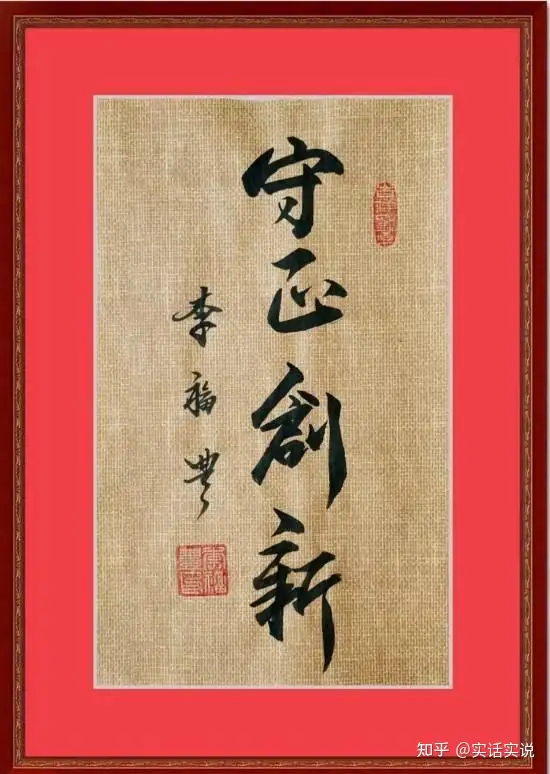 守正創新
李福豊
知乎 @实话实说